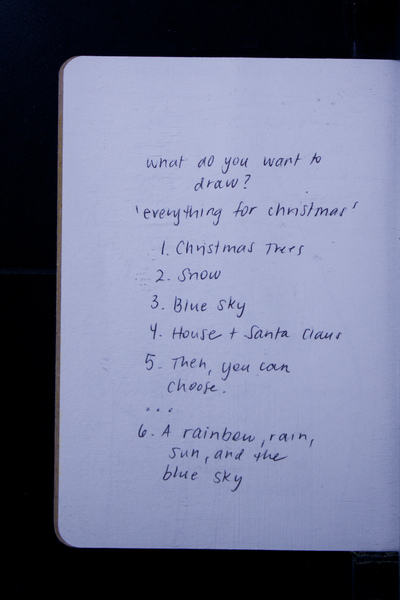 what do you want to
draw?
'everything for christmas'
1. Christmas Trees
2. Snow
3. Blue sky
4. House + Santa Claus
5. Then, you can
choose.
...
6. A rainbow, rain,
sun, and the
blue sky